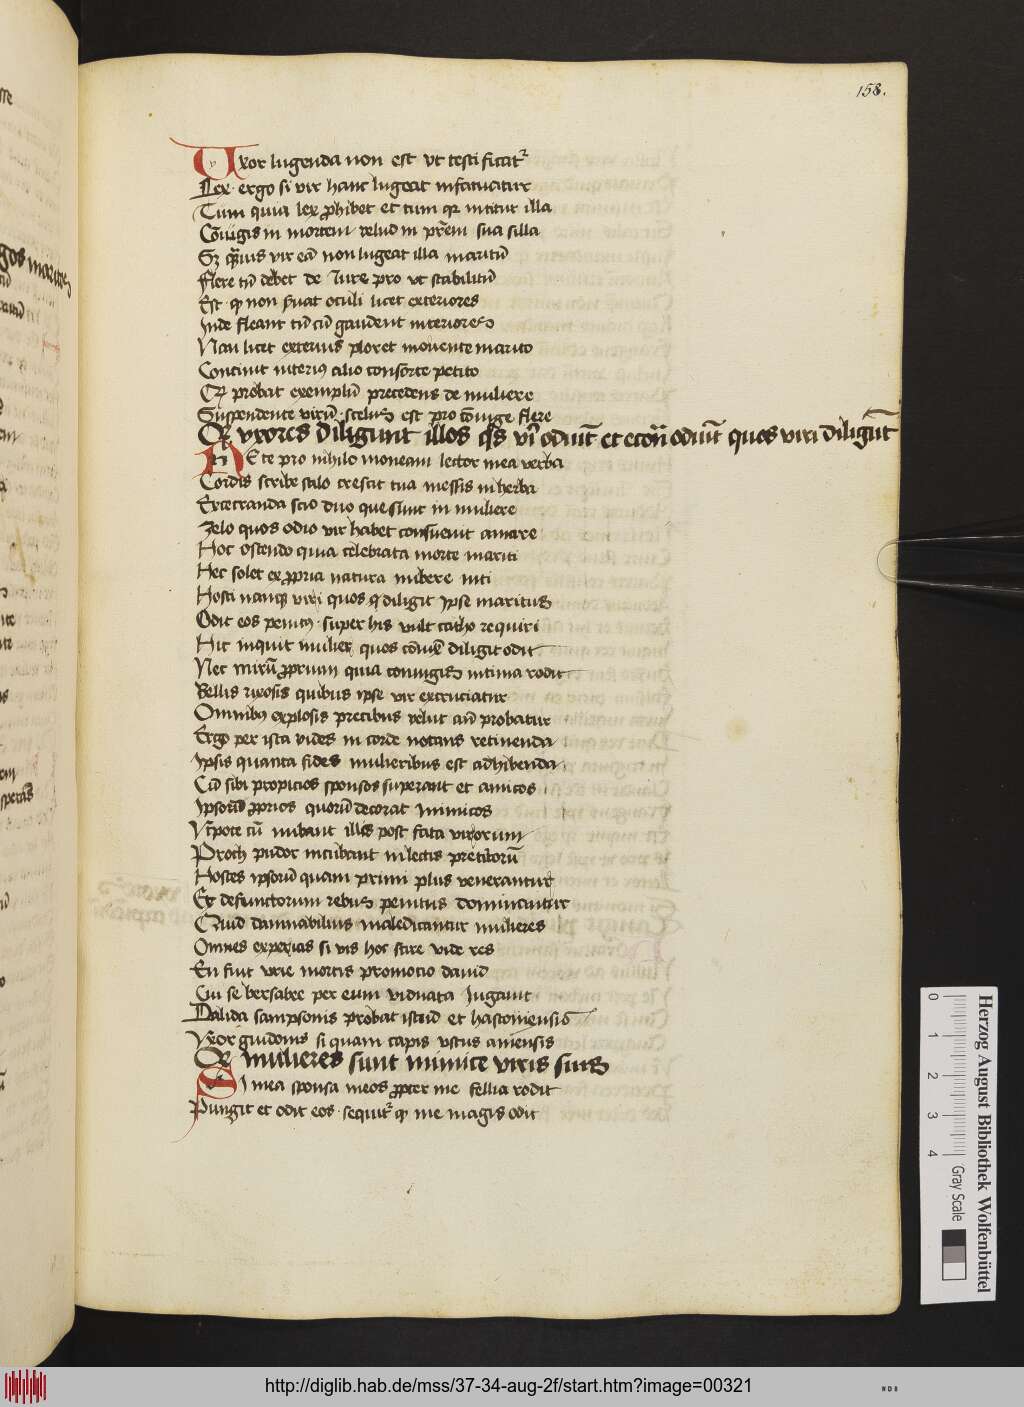 158.
Uxor lugenda non est ut testificatr
Lex ergo si vir hanc lugeat infatuatur
Tum quia lex prohibet et tum qr nititur illa
Coniugis in mortem velud in prem sua silla
Sz qmuis vir ea non lugeat illa maritu
Flere tn debet de Iure pro ut stabilitu
Est qp non fluat oculi licet exteriores
Inde fleant tn cu gaudent interiores
Nam licet exterius ploret moriente marito
Continut interius alio consorte petito
Qz probat exemplu precedens de muliere
Suspendente viru scelus est pro coniuge flere
Qr uxores diligunt illos qs viri odiut et econ odiut quos viri diligut
Ne te pro nihilo moneam lector mea verba
Cordis scribe stilo crescit tua messis in herba
Execranda scio duo que sunt in muliere
Zelo quos odio vir habet consuevit amare
Hoc ostendo quia celebrata morte mariti
Hec solet ex propria natura nubere niti
Hosti namq viri quos q diligit Ipse maritus
Odit eos penitus super his vult catho requiri
Hic inquit mulier quos coniux diligit odit
Nec miru proprium quia coniugis intima rodit
Bellis rixosis quibus ipse vir excruciatur
Omnibus explosis precibus velut an probatur
Ergo per ista vides in corde notans retinenda
Ipsis quanta fides mulieribus est adhibenda
Cu sibi propicios sponsos superant et amicos
Ipsoru proprios quoru decorat inimicos
Utpote cu nubant illis post fata virorum
Proch pudor incubant in lectis preteritoru
Hostes ipsoru quam primi plus venerantur
Et defunctorum rebus penitus dominantur
Quid damnabilius maledicantur mulieres
Omnes experias si vis hoc scire vide res
En fiut urie mortis promocio dauid
Cui se bersabee per eum viduata Iugauit
Dalida sampsonis probat istud et hastoniensis
Uxor guidonis si quam capis ustus amensis
Qr mulieres sunt inimice viris suis
Si mea sponsa meos propter me fellia rodit
Pungit et odit eos sequitr qp me magis odit
0 1 2 3 4
Gray Scale
Herzog August Bibliothek Wolfenbüttel
http://diglib.hab.de/mss/37-34-aug-2f/start.htm?image=00321